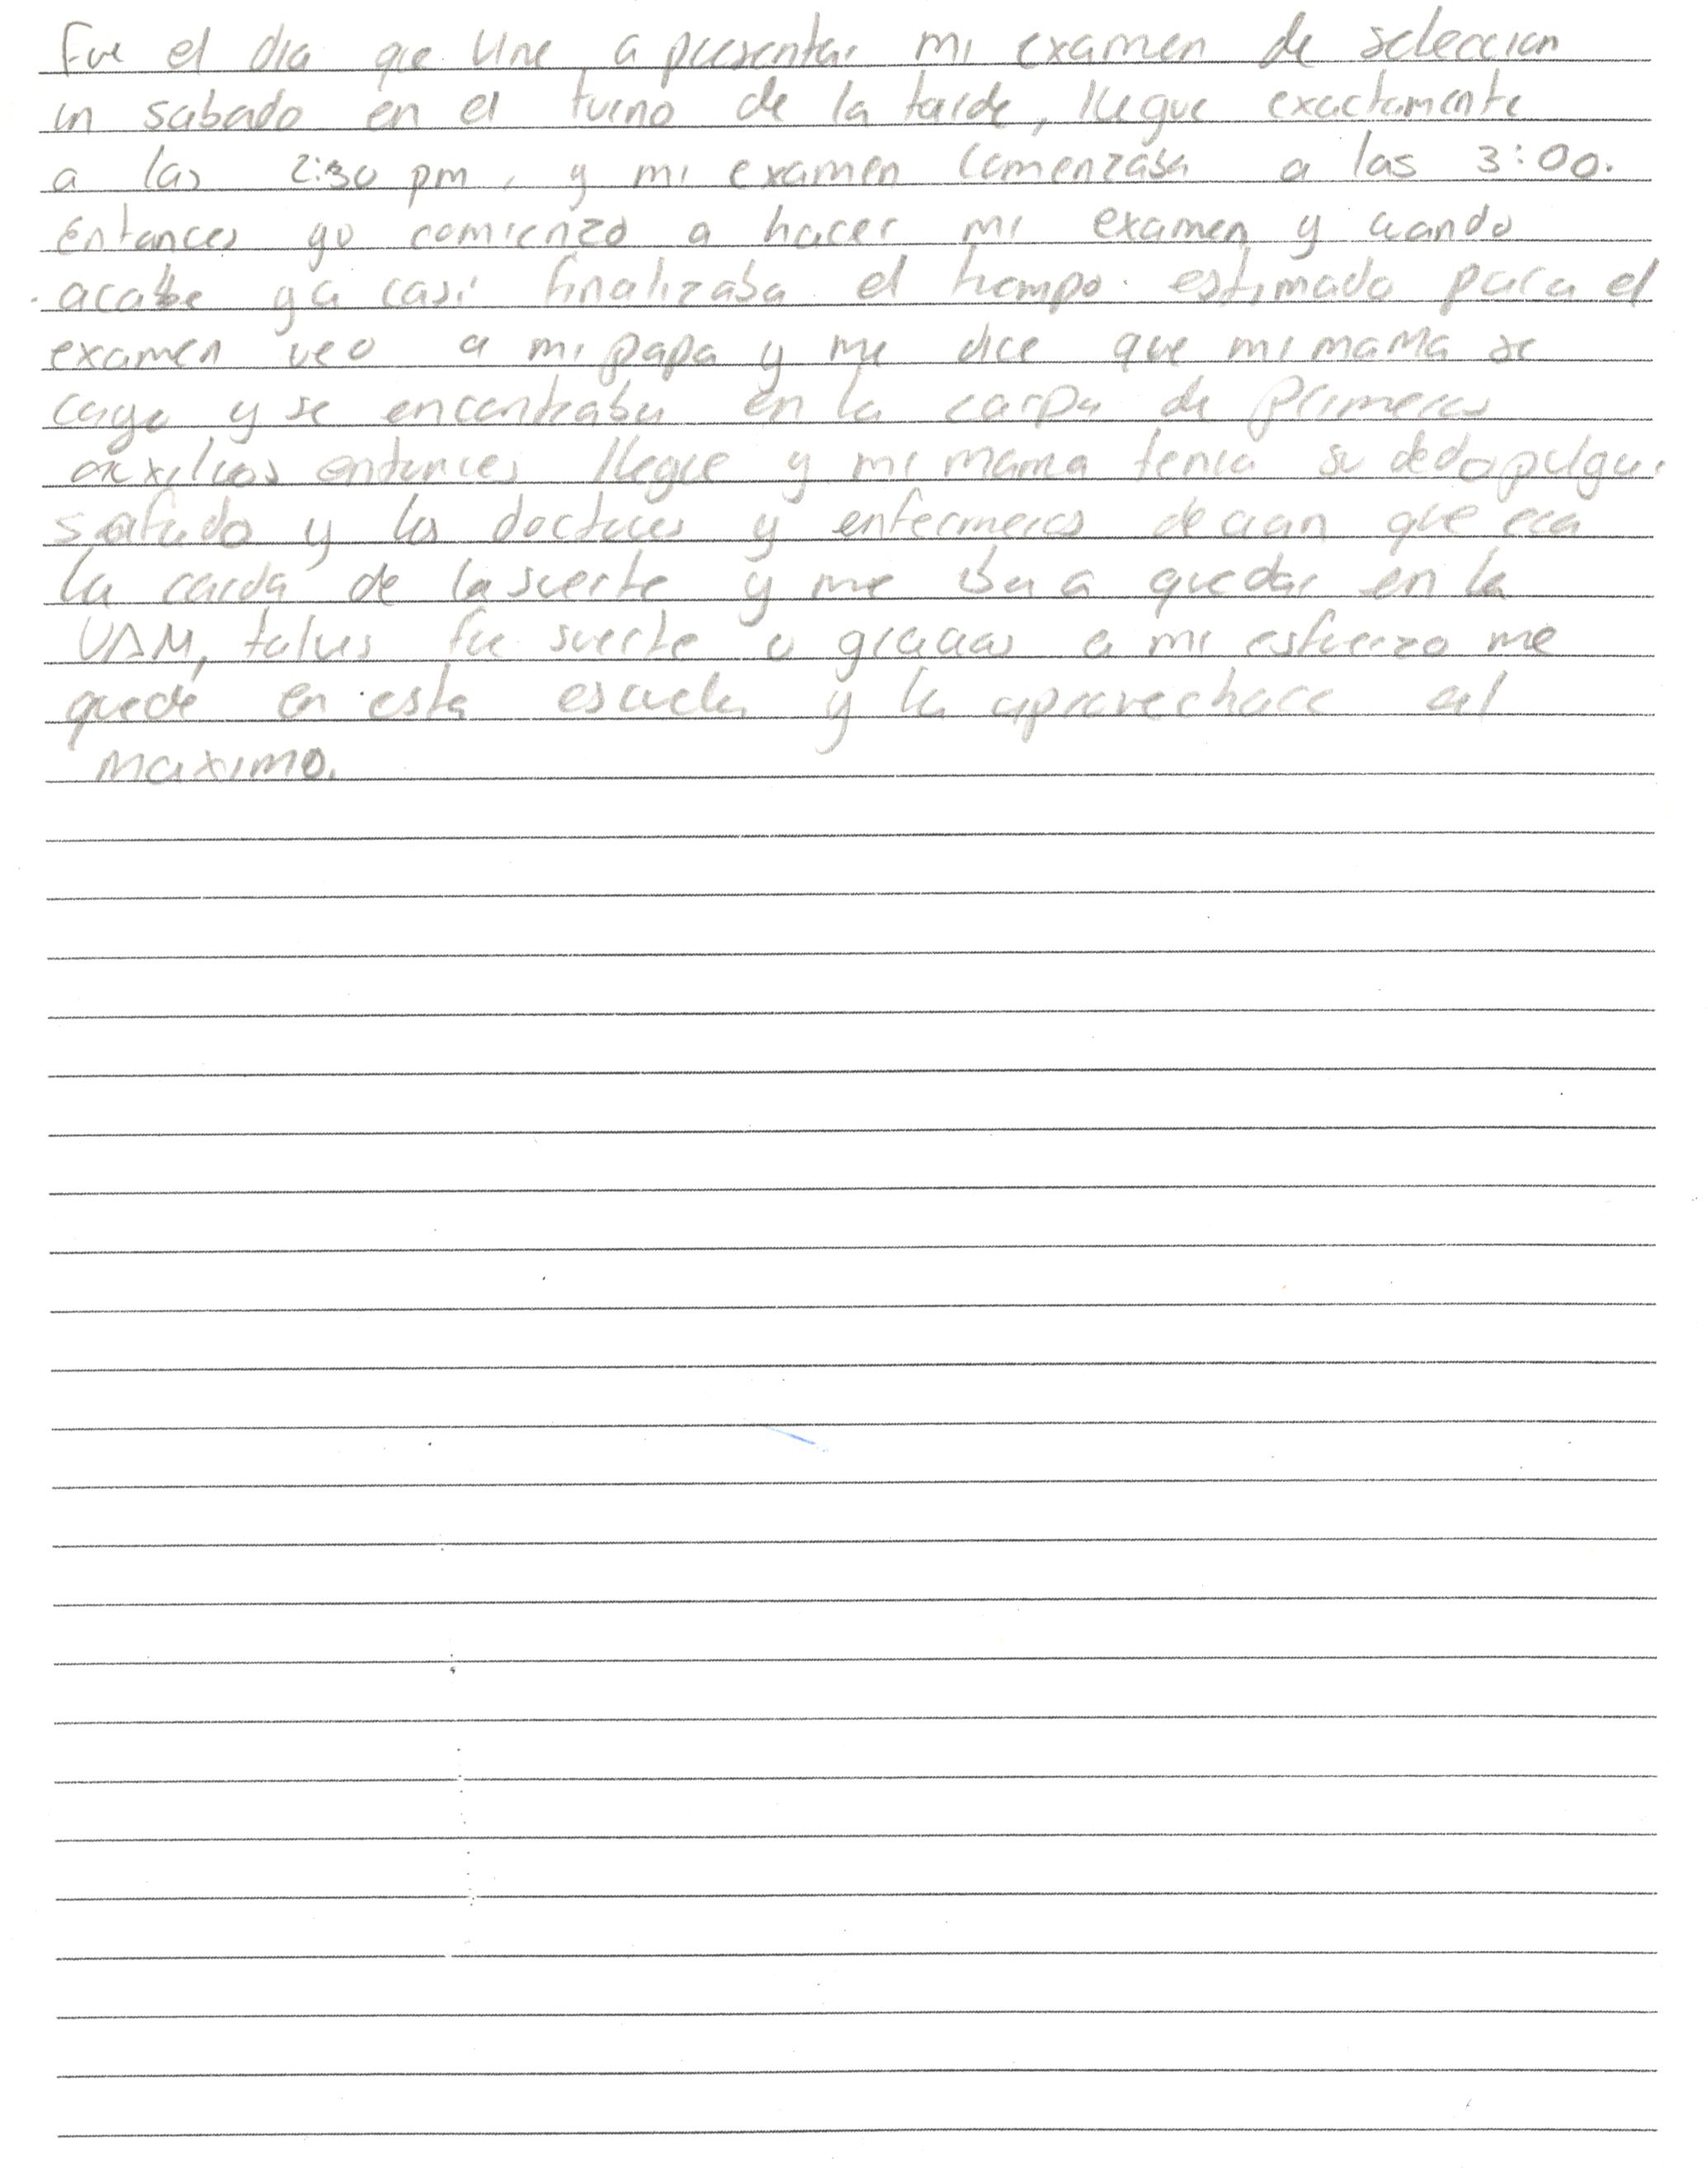 Fue el dia que vine a presentar mi examen de seleccion
un sabado en el turno de la tarde, llegue exactamente
a las 2:30 pm, y mi examen comenzaba a las 3:00.
Entonces yo comienzo a hacer mi examen y cuando
acabe ya casi finalizaba el tiempo estimado para el
examen veo a mi papa y me dice que mi mama se
cayo y se encontraba en la carpa de primeros
auxilios entonces llegue y mi mama tenia su dedo pulgar
safado y los doctores y enfermeros decian que era
la caida de la suerte y me iba a quedar en la
UAM, talves fue suerte o gracias a mi esfuerzo me
quede en esta escuela y la aprovechare al
maximo.